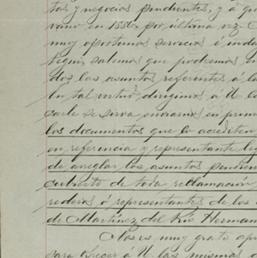 tas y negocios pendientes, y á que
vano en 1882 por última vez. C
muy oportunos servicios é inde
seguir, sabemos que podremos en
dos los asuntos referentes á la
En tal virtud, dirigimos á U la
parte se sirva enviarnos en prim
los documentos que lo acrediten
en referencia y representante le
de arreglar los asuntos pendien
cubierto de toda reclamacion
rederos ó representantes de los
de Martinez del Rio Herman
Nos es muy grato apr
para ofrecer á U las mismas